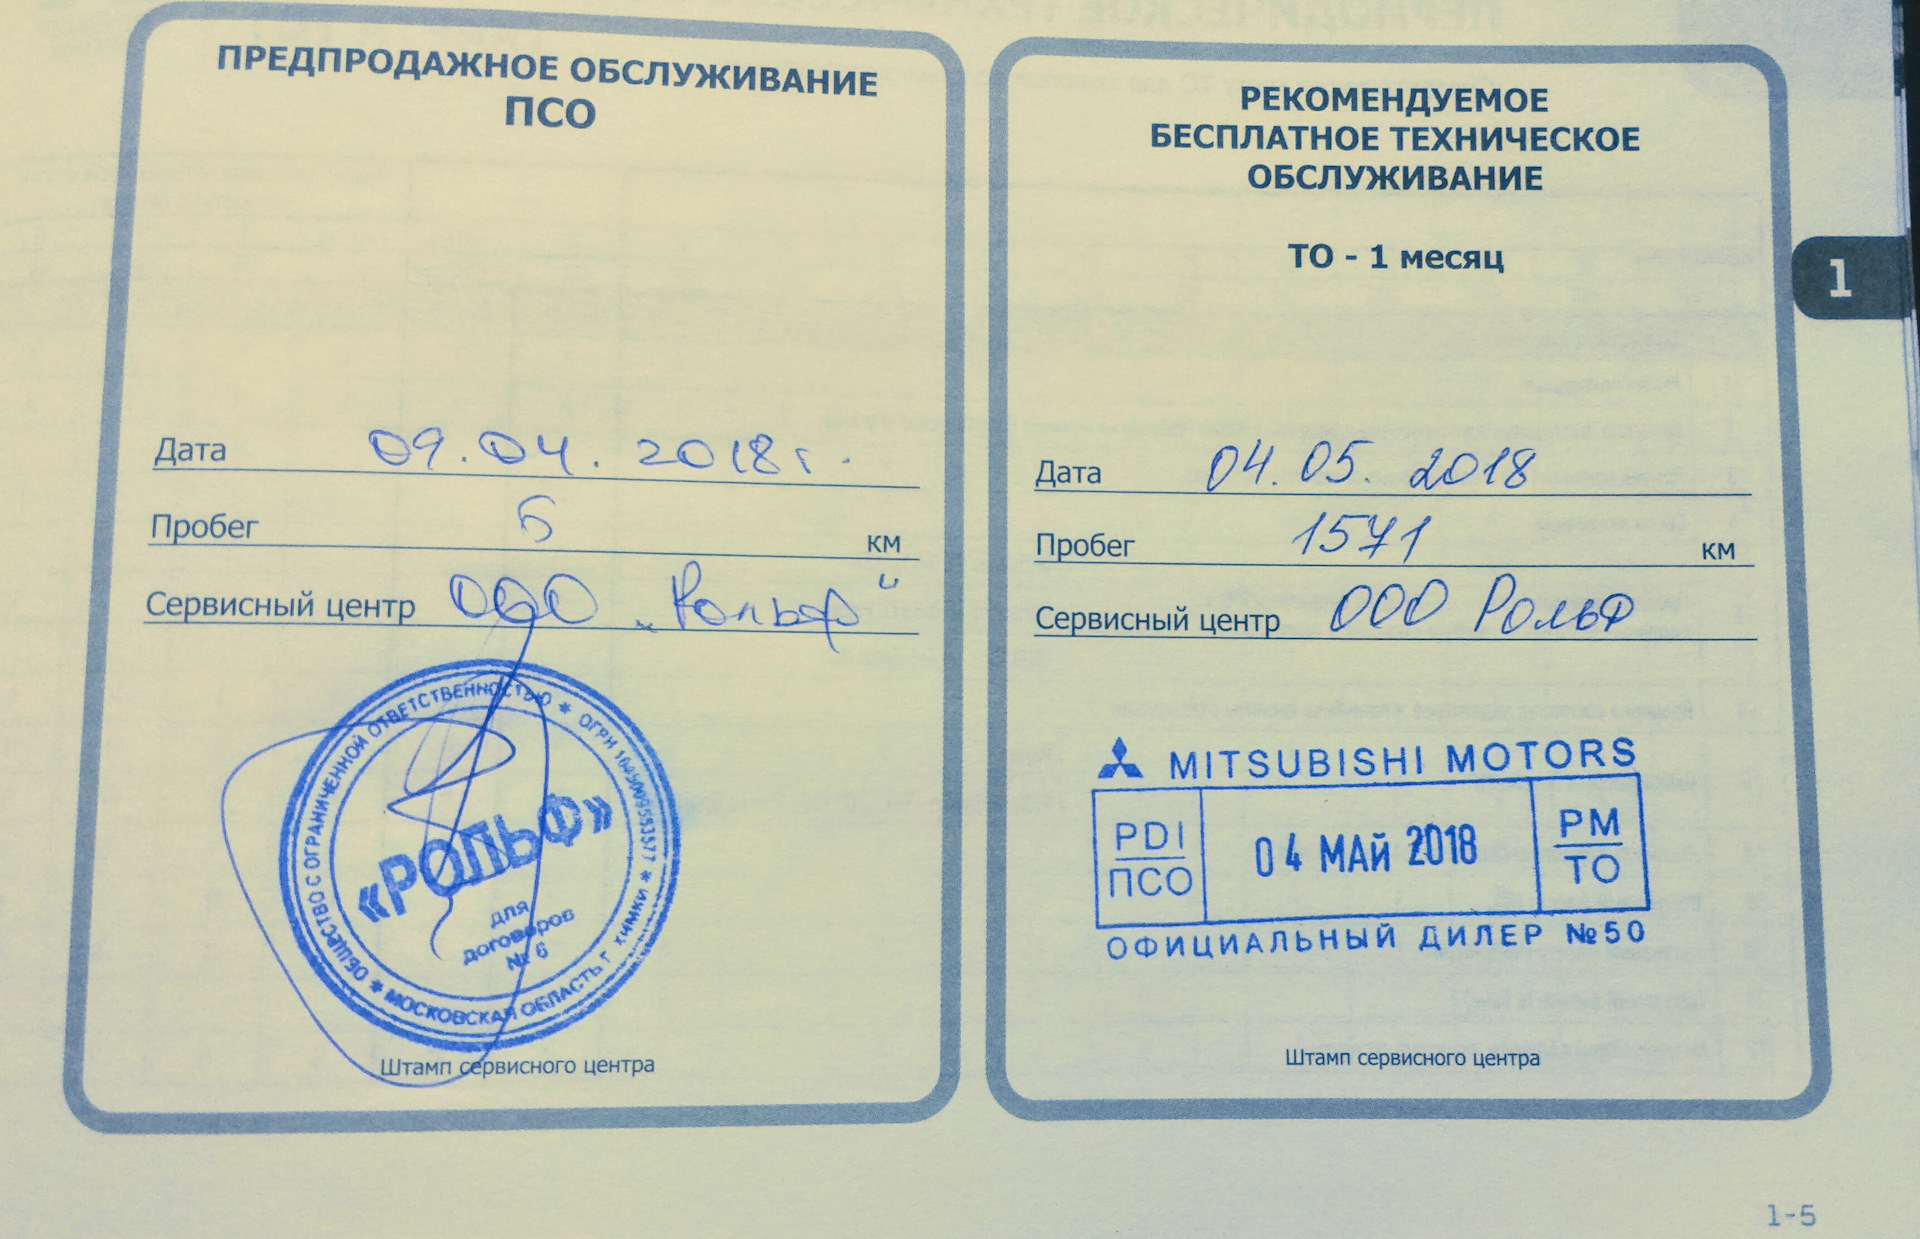 ПРЕДПРОДАЖНОЕ ОБСЛУЖИВАНИЕ
ПСО
Дата 09.04.2018г.
Пробег 5 км
Сервисный центр ООО „Рольф“
ОБЩЕСТВО С ОГРАНИЧЕННОЙ ОТВЕТСТВЕННОСТЬЮ * ОГРН 1045009553577 * МОСКОВСКАЯ ОБЛАСТЬ г. ХИМКИ *
«РОЛЬФ»
для
договоров
№ 6
Штамп сервисного центра
РЕКОМЕНДУЕМОЕ
БЕСПЛАТНОЕ ТЕХНИЧЕСКОЕ
ОБСЛУЖИВАНИЕ
ТО - 1 месяц
Дата 04.05.2018
Пробег 1571 км
Сервисный центр ООО Рольф
MITSUBISHI MOTORS
PDI
ПСО
04 МАЙ 2018
PM
ТО
ОФИЦИАЛЬНЫЙ ДИЛЕР №50
Штамп сервисного центра
1
1-5